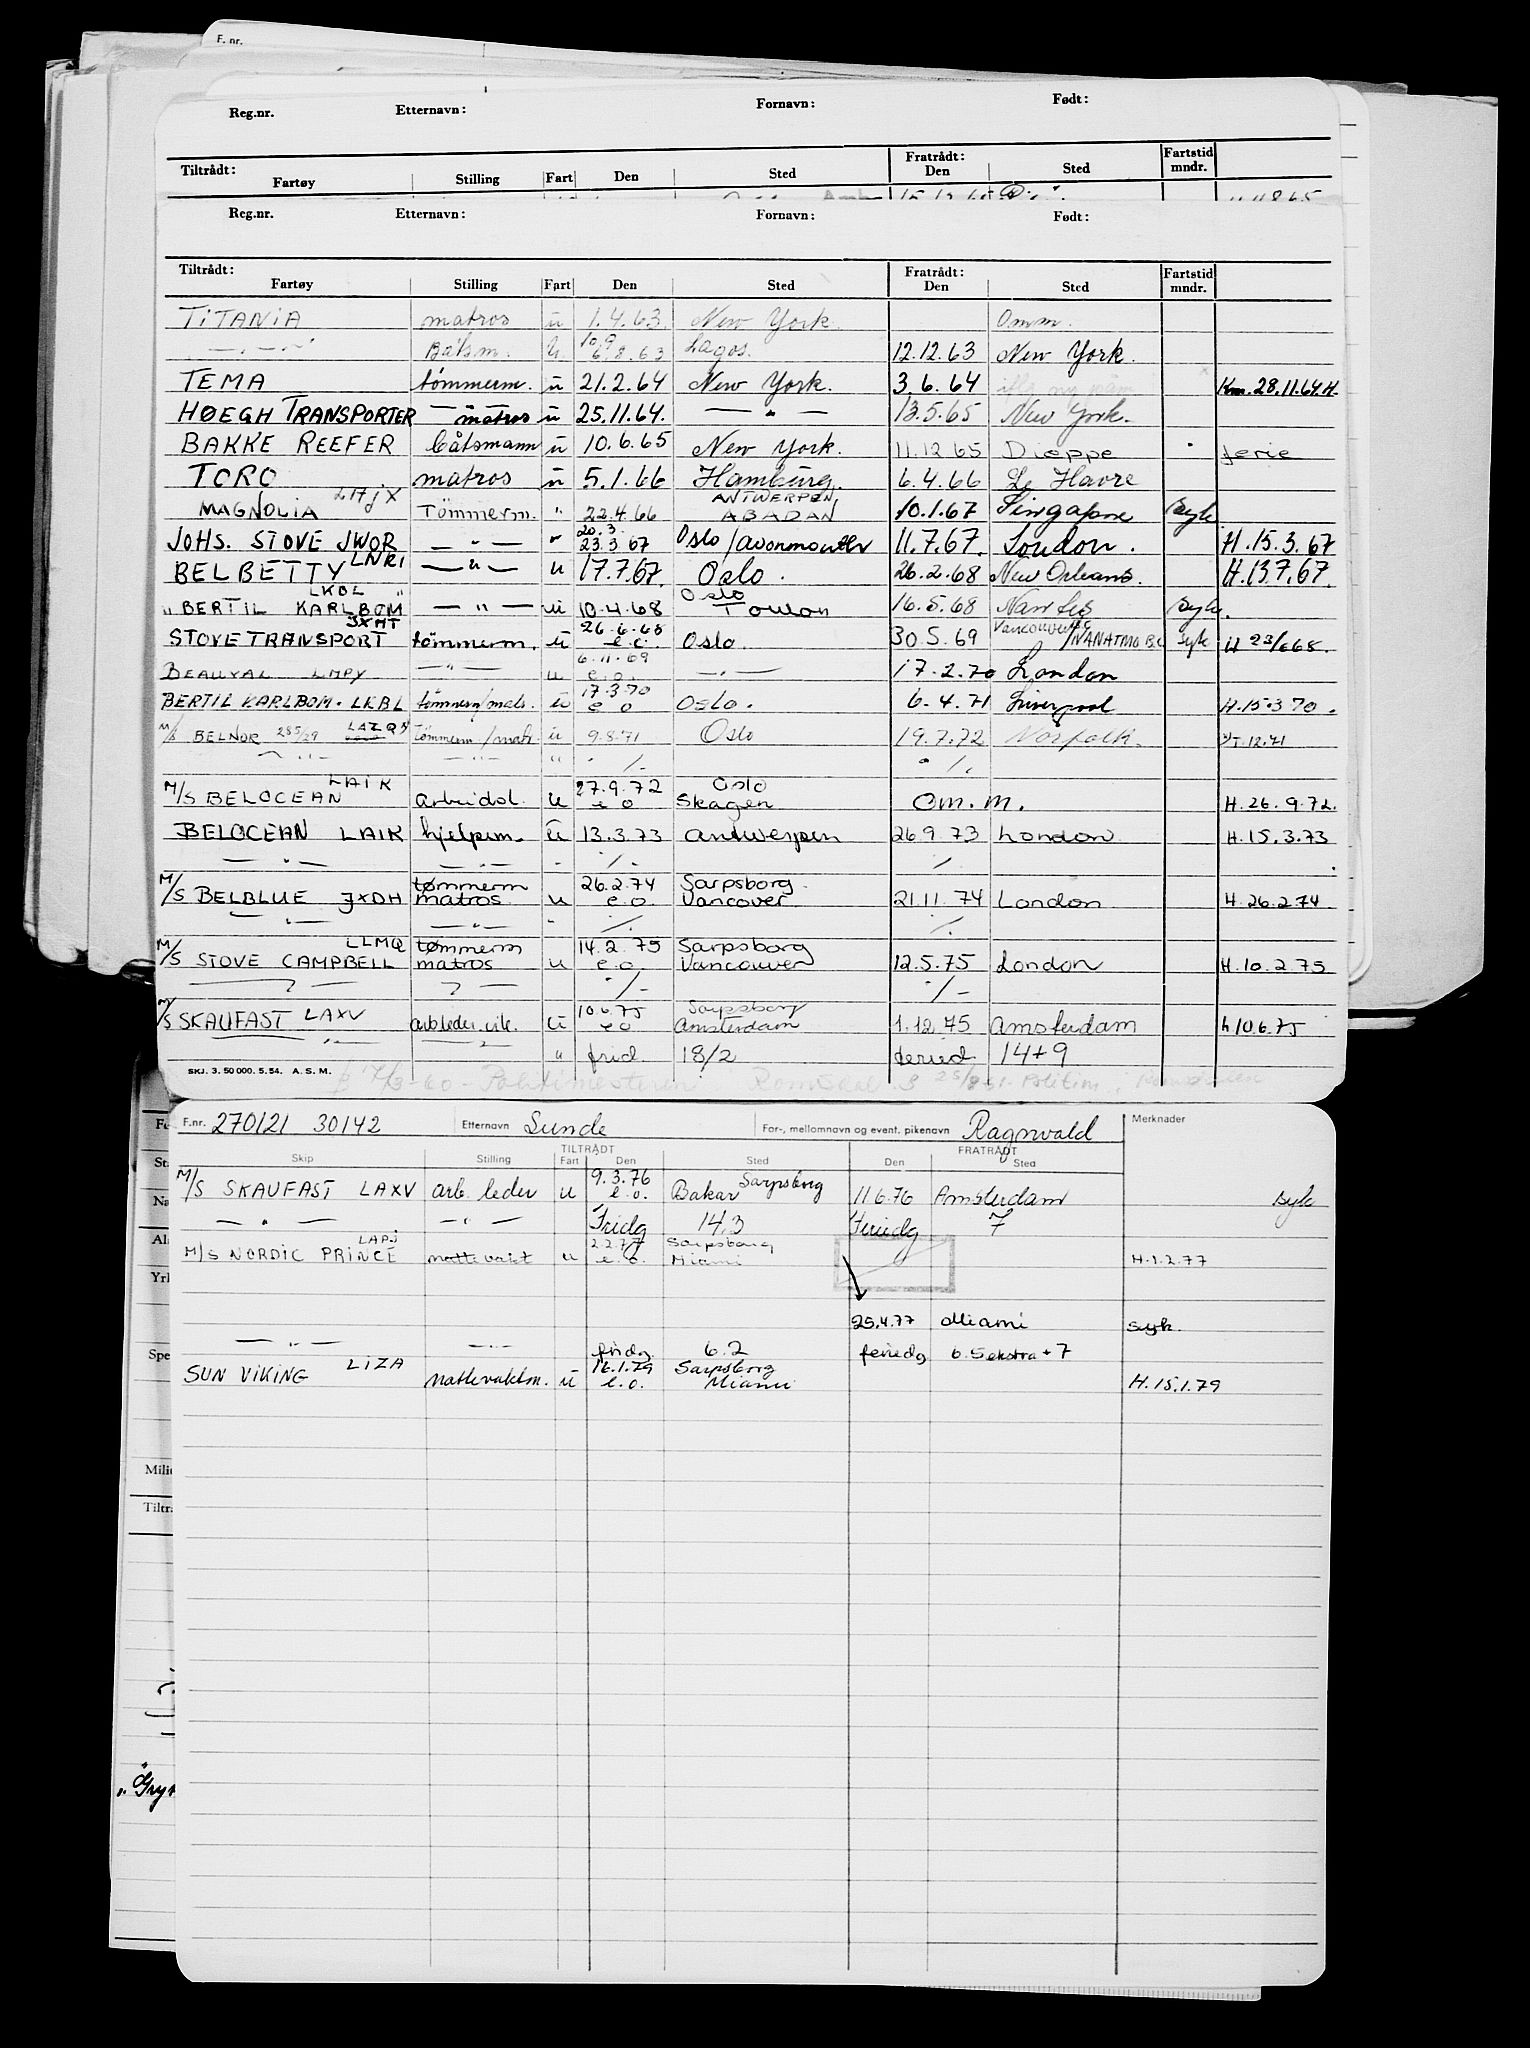 F. nr.
Reg.nr. Etternavn: Fornavn: Født:
Tiltrådt: Fratrådt: Fartstid
Fartøy Stilling Fart Den Sted Den Sted mndr.
15.12.65
Reg.nr. Etternavn: Fornavn: Født:
Tiltrådt: Fratrådt: Fartstid
Fartøy Stilling Fart Den Sted Den Sted mndr.
TITANIA matros u 1.4.63. New York. Omm.
— " — Båtsm. u 10.9 6.8.63 Lagos. 12.12.63 New York.
TEMA tömmerm. u 21.2.64 New York. 3.6.64 Km. 28.11.64 H.
HØEGH TRANSPORTER matros u 25.11.64. — " — 13.5.65 New York.
BAKKE REEFER båtsmann u 10.6.65 New York. 11.12 65 Dieppe ferie
TORO matros u 5.1.66 Hamburg. 6.4.66 Le Havre
MAGNOLIA LHJX Tömmerm. " 22.4.66 ANTWERPEN ABADAN 10.1.67 Singapore Syk
JOHS. STOVE JWOR — " — " 20.3 23.3 67 Oslo / avonmouth 11.7.67. London. H.15.3.67
BELBETTY LNRI — " — u 17.7.67. Oslo. 26.2.68 New Orleans. H.13.7.67.
" BERTIL KARLBOM LKBL " — " — u 10.4.68 Oslo Toulon 16.5.68 Nantes Syk.
STOVE TRANSPORT JXMT tömmerm. u 26.6.68 e.o. Oslo. 30.5.69 Vancouver BC /NANAIMO B.C syk H 23/668.
BEAUVAL LMPY — " — u 6.11.69 e.o. — " — 17.2.70 London
BERTIL KARLBOM. LKBL tömmerm/mats. u 17.3.70 e o Oslo. 6.4.71 Liverpool H.15.3 70.
M/S BELNOR 285/29 LAZQ tömmerm./matr. u 9.8.71 Oslo 19.7.72 Norfolk.
— " — — " — " ./. ./.
M/S BELOCEAN LAIK arbeidsl. u 27.9.72 e o Oslo Skagen Om.m. H.26.9.72.
BELOCEAN LAIK hjelpem. u 13.3.73 Antwerpen 26.9.73 London H.15.3.73
— " — — " — - ./. ./.
M/S BELBLUE JXDH tømmerm matros u 26.2.74 e.o. Sarpsborg. Vancover 21.11.74 London H.26.2.74
— " — — " — - ./. ./.
M/S STOVE CAMPBELL LLMQ tømmerm matros u 14.2.75 e.o. Sarpsborg Vancouver 12.5.75 London H.10.2.75
— " — — " — ./. ./.
M/S SKAUFAST LAXV arbleder.vik. u 10.6.75 e o Sarpsborg Amsterdam 1.12.75 Amsterdam h 10.6.75
— " — — " — " frid. 18/2 feried 14+9
SKJ. 3. 50 000. 5.54. A. S. M.
F.nr. 270121 30142 Etternavn Lunde For-, mellomnavn og event. pikenavn Ragnvald Merknader
TILTRÅDT FRATRÅDT
Skip Stilling Fart Den Sted Den Sted
M/S SKAUFAST LAXV arb. leder u 9.3.76 e.o. Sarpsborg Bakar 11.6.76 Amsterdam syk
— " — — " — Fridg 14,3 Feriedg 7
M/S NORDIC PRINCE LAPJ nattevakt u 2.2.77 e.o. Sarpsborg Miami H.1.2.77
25.4.77 Miami syk.
— " — — " — fridg 6.2 feriedg 6.5 ekstra + 7
SUN VIKING LIZA nattevaktm. u 16.1.79 e.o. Sarpsborg Miami H.15.1.79
Milit
Tiltr